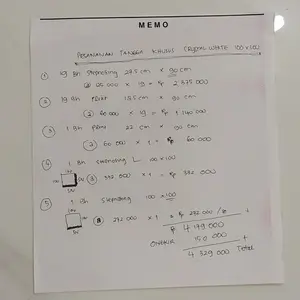 MEMO
PESANAN TANGGA KHUSUS CRYSTAL WHITE 100x100
① 19 Bh stepnoting 27.5 cm x 90 cm
@ 125 000 x 19 = Rp 2 375 000
② 19 Bh Plint 15.5 cm x 90 cm
@ 60 000 x 19 = Rp 1 140 000
③ 1 Bh Plint 22 cm x 90 cm
@ 60 000 x 1 = Rp 60 000
④ 1 Bh stepnoting L 100 x 100
@ 392 000 x 1 = Rp 392 000
⑤ 1 Bh stepnoting 100 x 100
@ 232 000 x 1 = Rp 232 000
Rp 4 199 000
ONGKIR 150 000 +
4 329 000 Total